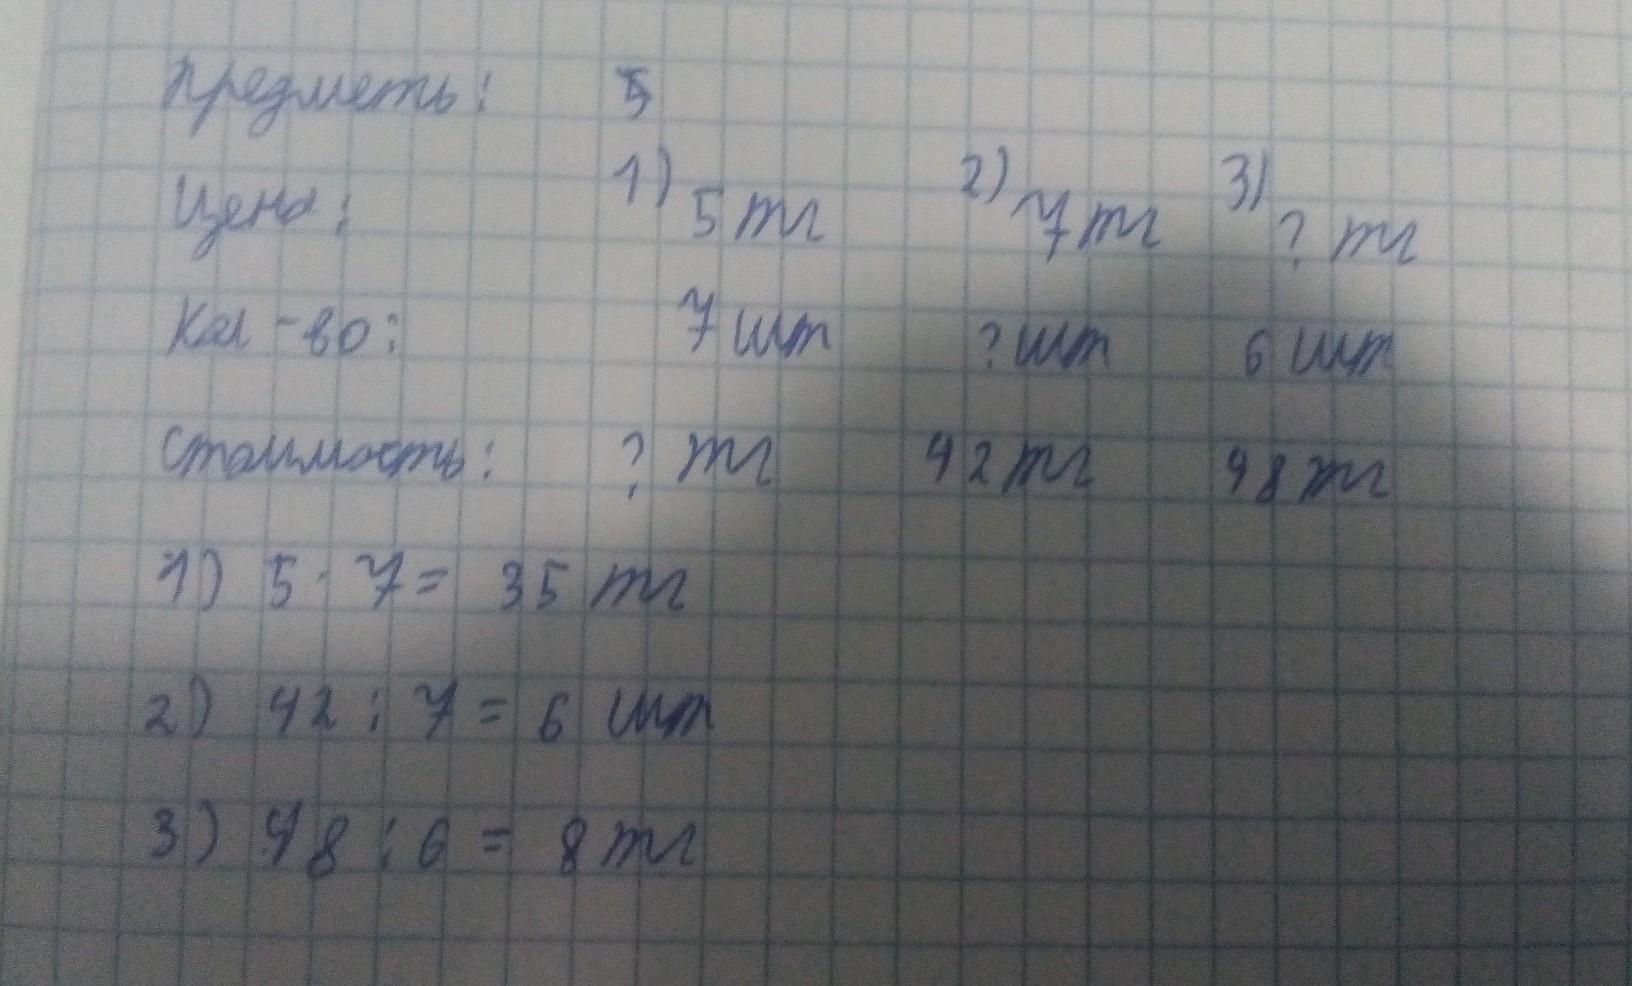 Предметь: 5
Цена: 1) 5 тг 2) 7 тг 3) ? тг
Кол-во: 7 шт ? шт 6 шт
Стоимость: ? тг 42 тг 48 тг
1) 5 · 7 = 35 тг
2) 42 : 7 = 6 шт
3) 48 : 6 = 8 тг